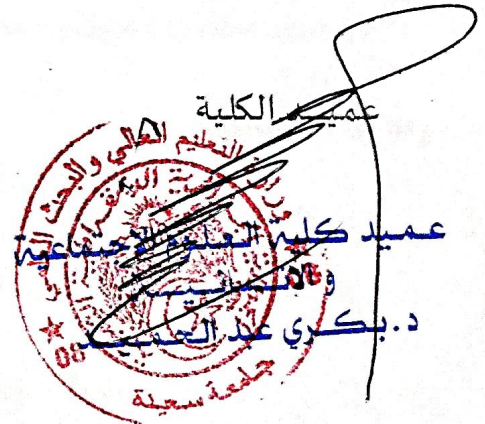 عميد الكلية
التعليم العالي والبحث
عميد كلية العلوم الاجتماعية
والانسانية
د. بكري عبد الحميد
08
جامعة سعيدة